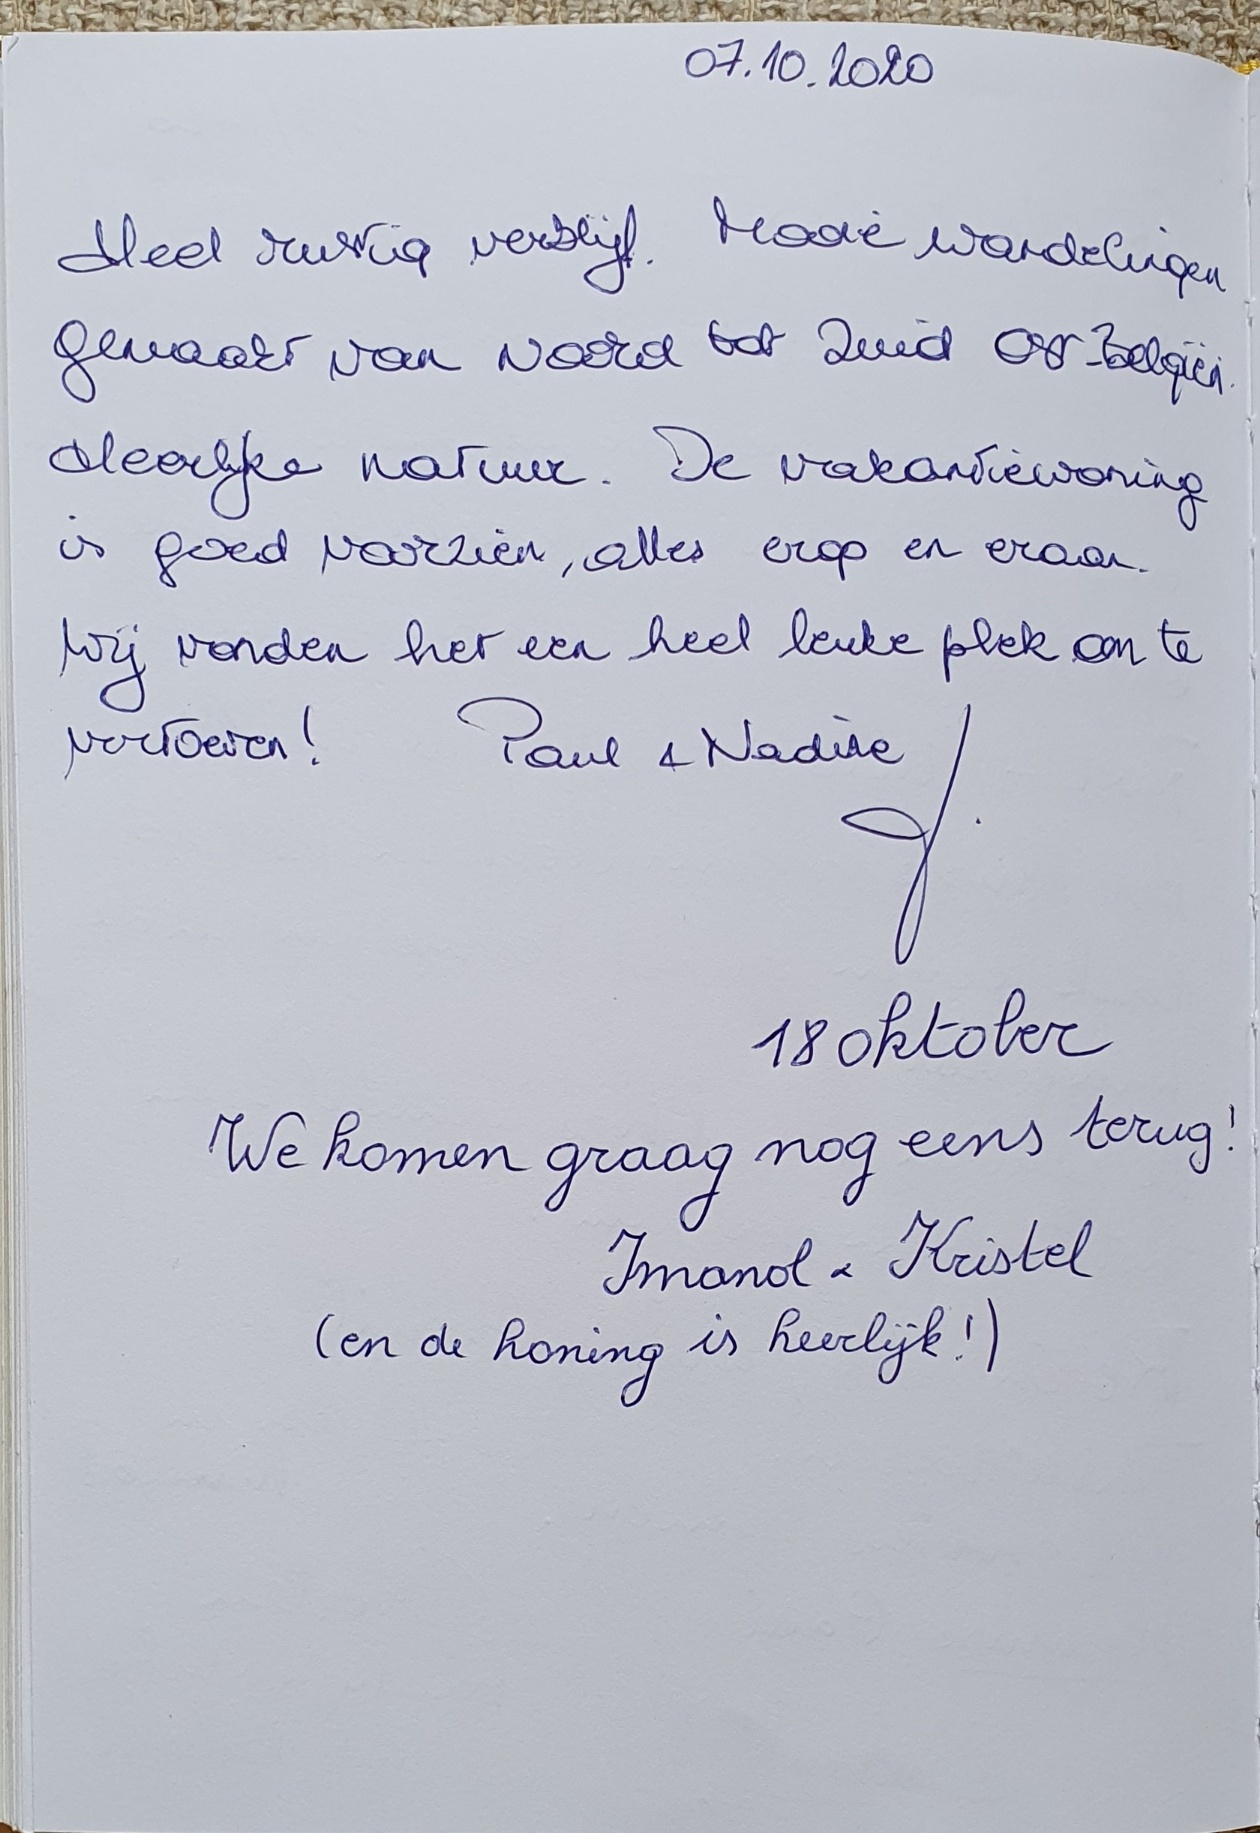 07.10.2020
Heel rustig verblijf. Mooie wandelingen
gemaakt van Noord tot Zuid Ost-Belgiën.
Heerlijke natuur. De vakantiewoning
is goed voorzien, alles erop en eraan.
Wij vonden het een heel leuke plek om te
vertoeven! Paul & Nadine
18 oktober
We komen graag nog eens terug!
Imanol & Kristel
(en de honing is heerlijk!)